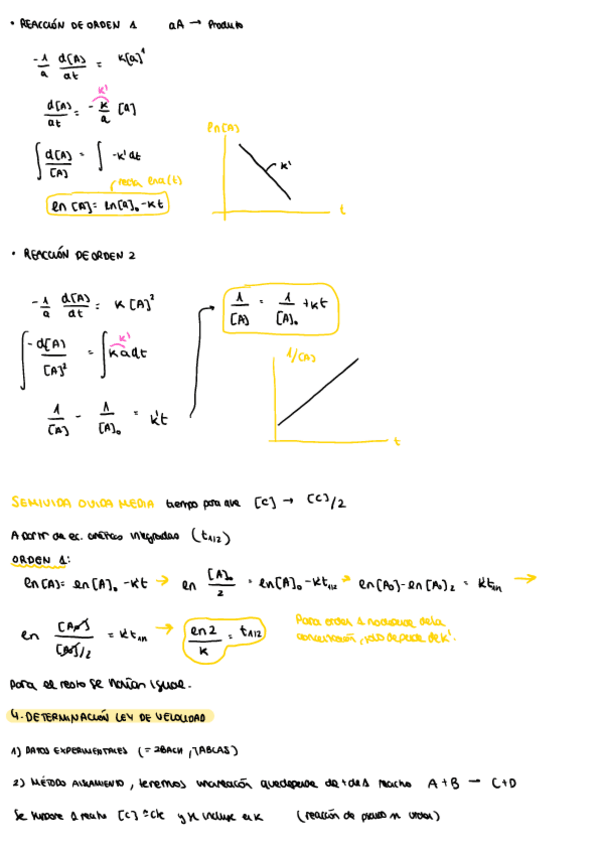 • REACCIÓN DE ORDEN 1 aA → Producto
-1/a d[A]/dt = K[a]^1
K'
d[A]/dt = - K/a [a]
∫ d[A]/[A] = ∫ -K'dt
recta
ln [A] = ln[A]₀ - Kt
ln[A]
K'
t
• REACCIÓN DE ORDEN 2
-1/a d[A]/dt = K [A]²
K'
∫ -d[A]/[A]² = ∫ K a dt
1/[A] - 1/[A]₀ = K't
1/[A] = 1/[A]₀ + Kt
1/[A]
t
SEMIVIDA O VIDA MEDIA tiempo para que [C] → [C]/2
A partir de ec. cinéticas integradas (t1/2)
ORDEN 1:
ln[A] = ln[A]₀ - Kt → ln [A]₀/2 = ln[A]₀ - Kt1/2 → ln[A₀] - ln[A₀]/2 = Kt1/2 →
ln [A₀]/[A₀]/2 = Kt1/2 → ln2/K = t1/2
Para orden 1 no depende de la
concentración, solo depende de K'.
Para el resto se harían igual.
4. DETERMINACIÓN LEY DE VELOCIDAD
1) DATOS EXPERIMENTALES (= 2BACH, TABLAS)
2) MÉTODO AISLAMIENTO, tenemos una reacción que depende de + de 1 reacti A + B → C + D
Se supone 1 [C] = cte y se incluye en K (reacción de pseudo n orden)